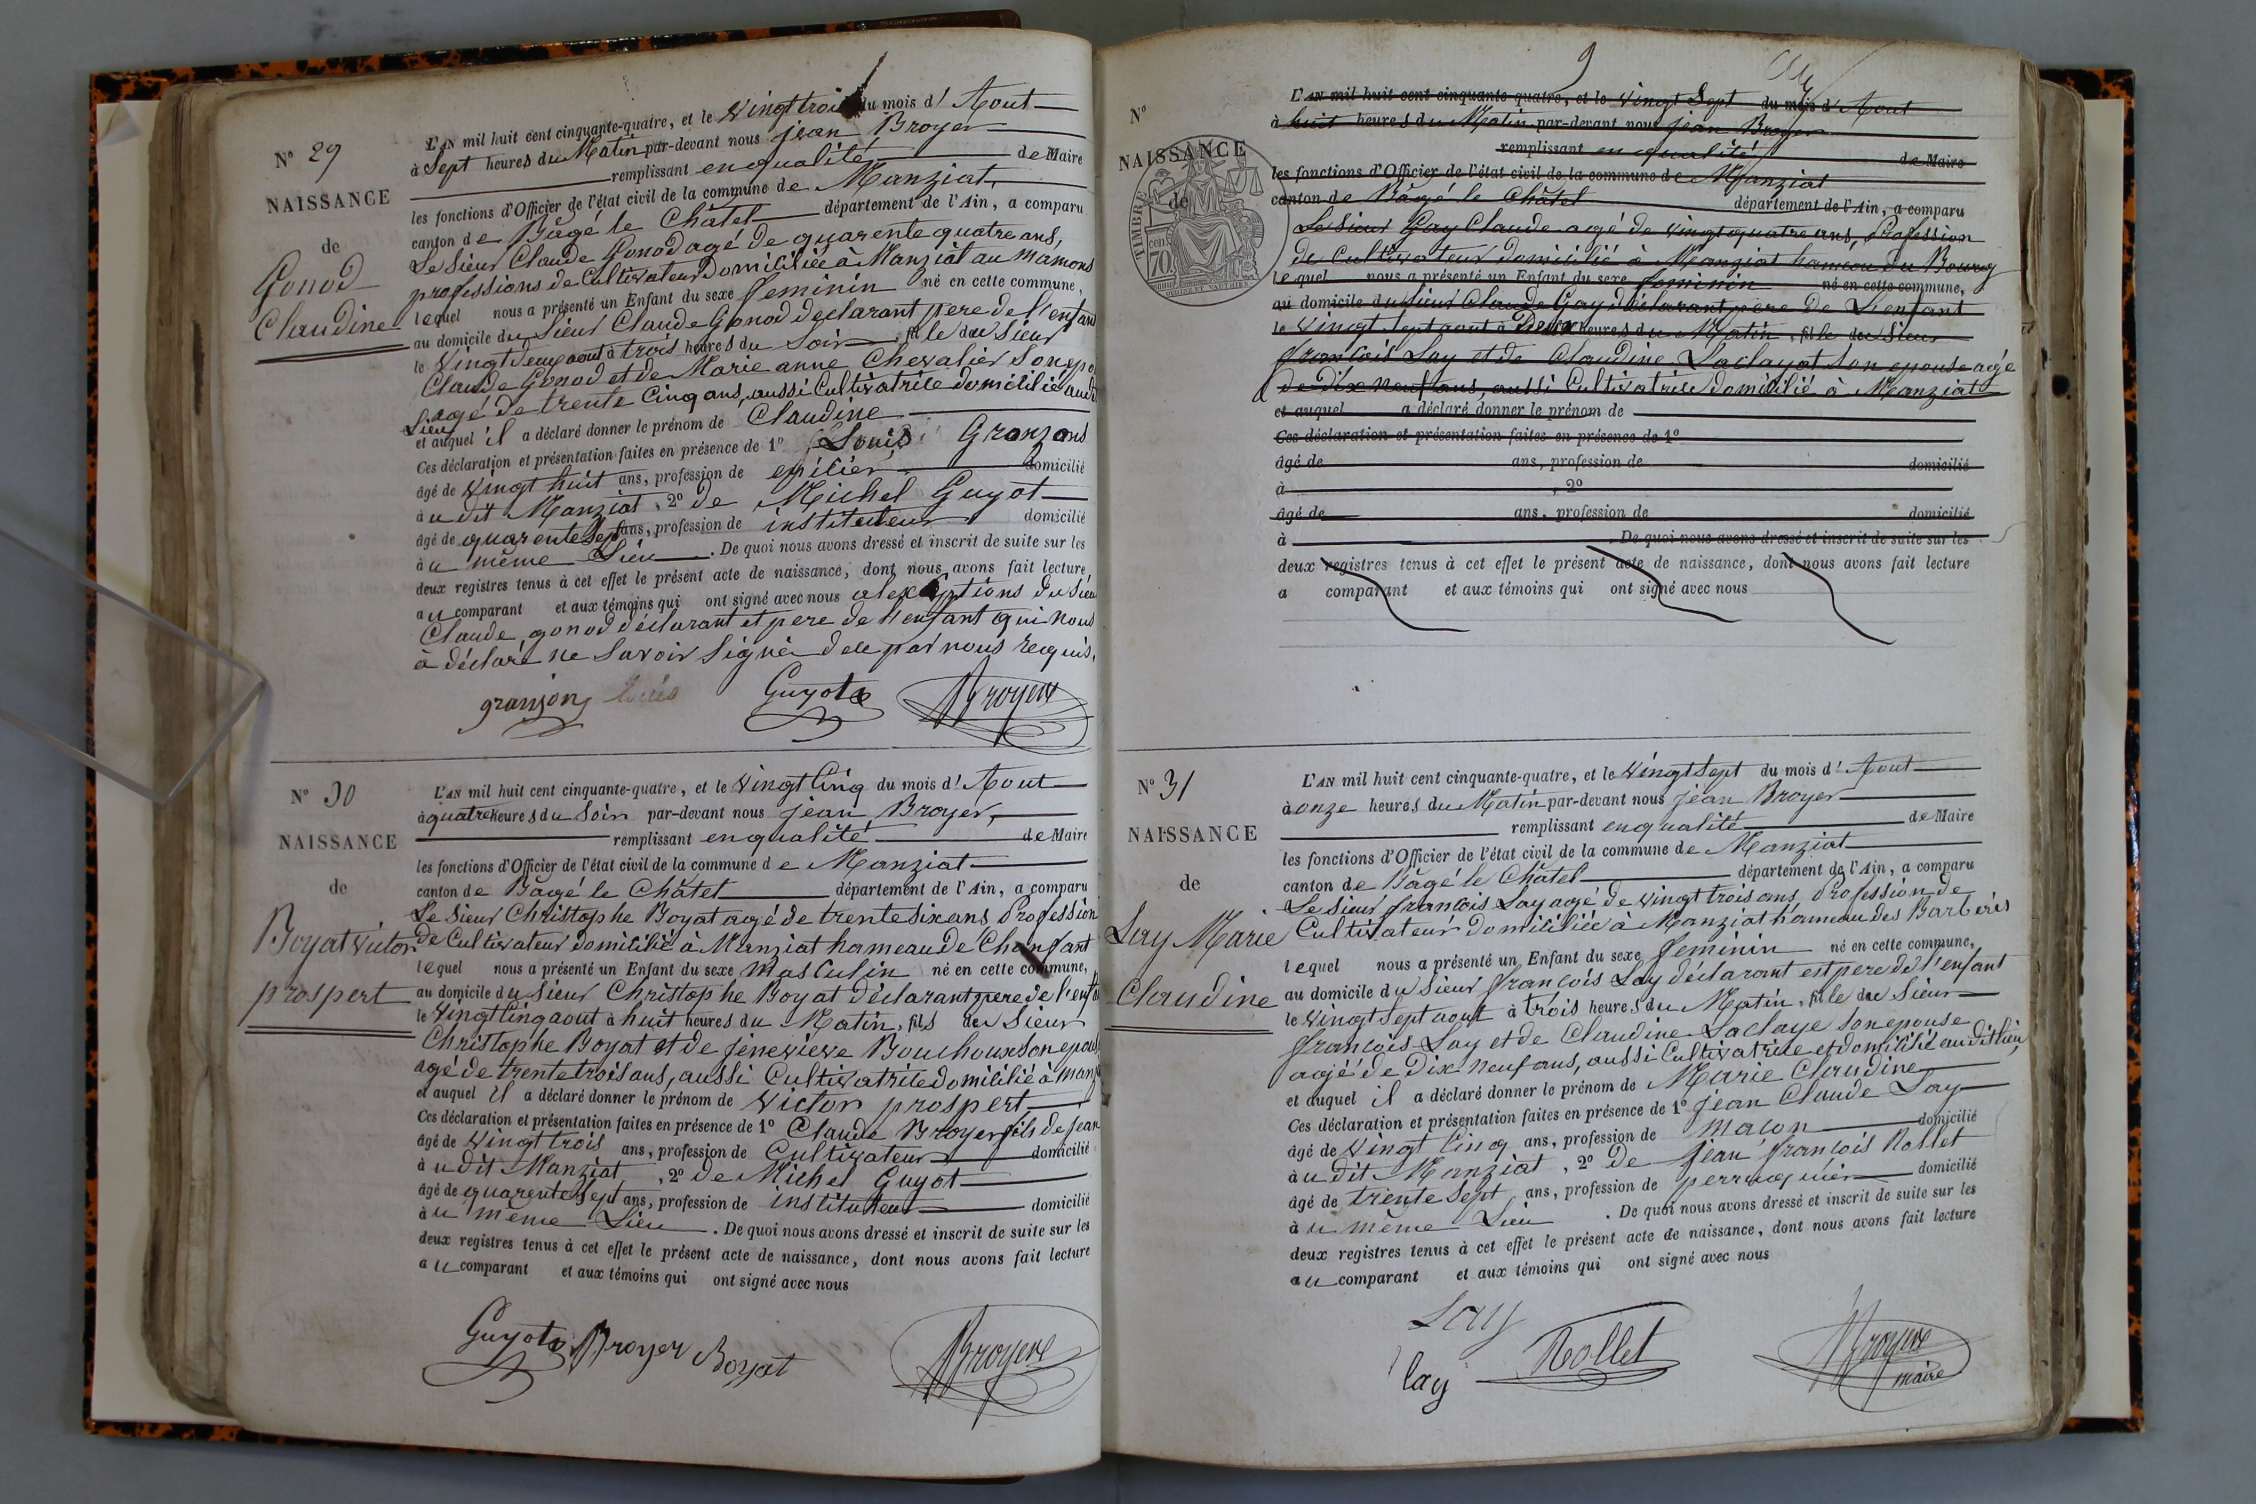 N° 29
NAISSANCE
de
Gonod
Claudine
L'AN mil huit cent cinquante-quatre, et le vingt trois du mois d'Aout
à Sept heures du Matin par-devant nous jean Broyer
remplissant en qualité de Maire
les fonctions d'Officier de l'état civil de la commune de Manziat,
canton de Bâgé le Châtel département de l'Ain, a comparu
Le Sieur Claude Gonod agé de quarente quatre ans,
professions de Cultivateur Domiciliée à Manziat au mamons
lequel nous a présenté un Enfant du sexe feminin né en cette commune,
au domicile du Sieur Claude Gonod declarant pere de l'enfant
le Vingt deux aout à trois heures du Soir fille du Sieur
Claude Gonod et de Marie anne Chevalier Son epo
agé de trente Cinq ans, aussi Cultivatrice domicilié audit
Lieu
et auquel il a déclaré donner le prénom de Claudine
Ces déclaration et présentation faites en présence de 1° Louis Granzons
âgé de Vingt huit ans, profession de epicier domicilié
au dit Manziat, 2° de Michel Guyot
âgé de quarente Sept ans, profession de instituteur domicilié
au même Lieu . De quoi nous avons dressé et inscrit de suite sur les
deux registres tenus à cet effet le présent acte de naissance, dont nous avons fait lecture
au comparant et aux témoins qui ont signé avec nous a lexceptions du Sieur
Claude gonod déclarant et pere de l'enfant qui nous
à déclaré ne Savoir Signé de par nous requis,
granjon Louis Guyot Broyer
N° 30
NAISSANCE
de
Boyat victor
prospert
L'AN mil huit cent cinquante-quatre, et le Vingt Cinq du mois d'Aout
à quatre heures du Soir par-devant nous jean Broyer,
remplissant en qualité de Maire
les fonctions d'Officier de l'état civil de la commune de Manziat
canton de Bâgé le Châtel département de l'Ain, a comparu
Le Sieur Christophe Boyat agé de trente six ans Profession
de Cultivateur domicilié à Manziat hameau de Chanfant
lequel nous a présenté un Enfant du sexe masculin né en cette commune,
au domicile du Sieur Christophe Boyat déclarant pere de l'enfa
le Vingt Cinq aout à huit heures du Matin, fils du Sieur
Christophe Boyat et de jenevieve Bouchoux Son epous
agé de trente trois ans, aussi Cultivatrice domicilié à manz
et auquel il a déclaré donner le prénom de Victor prospert
Ces déclaration et présentation faites en présence de 1° Claude Broyer fils de jean
âgé de Vingt trois ans, profession de Cultivateur domicilié
au dit Manziat, 2° de Michel Guyot
âgé de quarente Sept ans, profession de instituteur domicilié
au même Lieu . De quoi nous avons dressé et inscrit de suite sur les
deux registres tenus à cet effet le présent acte de naissance, dont nous avons fait lecture
au comparant et aux témoins qui ont signé avec nous
Guyot Broyer Boyat Broyer
9
N°
NAISSANCE
de
TIMBRE
70
L'AN mil huit cent cinquante-quatre, et le vingt Sept du mois d'Aout
à huit heures du Matin par-devant nous jean Broyer
remplissant en qualité de Maire
les fonctions d'Officier de l'état civil de la commune de Manziat
canton de Bâgé le Châtel département de l'Ain, a comparu
Le Sieur Gay Claude agé de vingt quatre ans, Profession
de Cultivateur domicilié à Manziat hameau du Bourg
lequel nous a présenté un Enfant du sexe feminin né en cette commune,
au domicile du Sieur Claude Gay déclarant pere de L'enfant
le Vingt Sept aout à heures du Matin, fille du Sieur
francois Lay et de Claudine Laclayat Son epouse agé
de Dix neuf ans, aussi Cultivatrice domicilié à Manziat
et auquel a déclaré donner le prénom de
Ces déclaration et présentation faites en présence de 1°
âgé de ans, profession de domicilié
à , 2°
âgé de ans, profession de domicilié
à . De quoi nous avons dressé et inscrit de suite sur les
deux registres tenus à cet effet le présent acte de naissance, dont nous avons fait lecture
a comparant et aux témoins qui ont signé avec nous
N° 31
NAISSANCE
de
Lay Marie
Claudine
L'AN mil huit cent cinquante-quatre, et le Vingt Sept du mois d'Aout
à onze heures du Matin par-devant nous jean Broyer
remplissant en qualité de Maire
les fonctions d'Officier de l'état civil de la commune de Manziat
canton de Bâgé le Châtel département de l'Ain, a comparu
Le Sieur francois Lay agé de vingt trois ans Profession de
Cultivateur domiciliée à Manziat hameau des Barberis
lequel nous a présenté un Enfant du sexe feminin né en cette commune,
au domicile du Sieur françois Lay déclarant est pere de l'enfant
le Vingt Sept aout à trois heures du Matin, fille du Sieur
francois Lay et de Claudine Laclaye Son epouse
agé de Dix neuf ans, aussi Cultivatrice et domicilié au dit lieu,
et auquel il a déclaré donner le prénom de Marie Claudine
Ces déclaration et présentation faites en présence de 1° jean Claude Lay
âgé de Vingt Cinq ans, profession de macon domicilié
au dit Manziat, 2° de jean françois Rollet
âgé de trente Sept ans, profession de perruquier domicilié
au même Lieu . De quoi nous avons dressé et inscrit de suite sur les
deux registres tenus à cet effet le présent acte de naissance, dont nous avons fait lecture
au comparant et aux témoins qui ont signé avec nous
Lay
Lay Rollet Broyer
maire